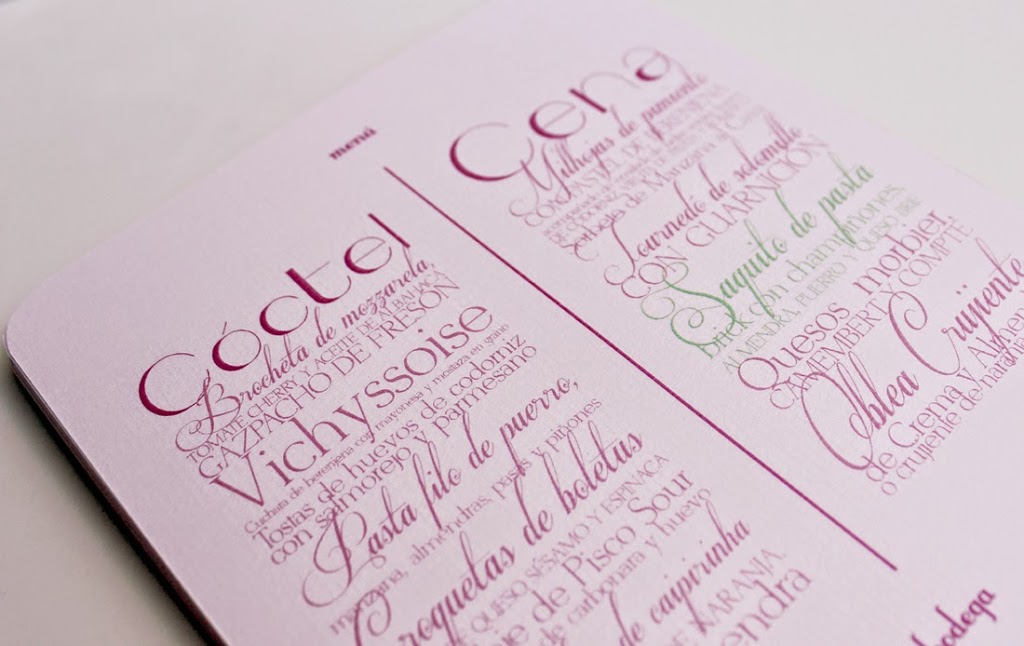 menú
Cóctel
Brocheta de mozzarela,
TOMATE CHERRY Y ACEITE DE ALBAHACA
GAZPACHO DE FRESÓN
Vichyssoise
Cuchara de berenjena con mayonesa y mostaza en grano
Tostas de huevos de codorniz
con salmorejo y parmesano
Pasta filo de puerro,
manzana, almendras, pasas y piñones
Croquetas de boletus
QUESO, SÉSAMO Y ESPINACA
de Pisco Sour
de carbonara y huevo
de caipirinha
DE NARANJA.
Cena
Milhojas de pimiento
CON PASTEL DE
Sorbete de Manzana al
Tournedó de solomillo
CON GUARNICIÓN
Saquito de pasta
brick con champiñones,
ALMENDRA, PUERRO Y QUESO BRIE
Quesos morbier,
CAMEMBERT Y COMPTE
Oblea Crujiente
de Crema y
o crujiente de
bodega